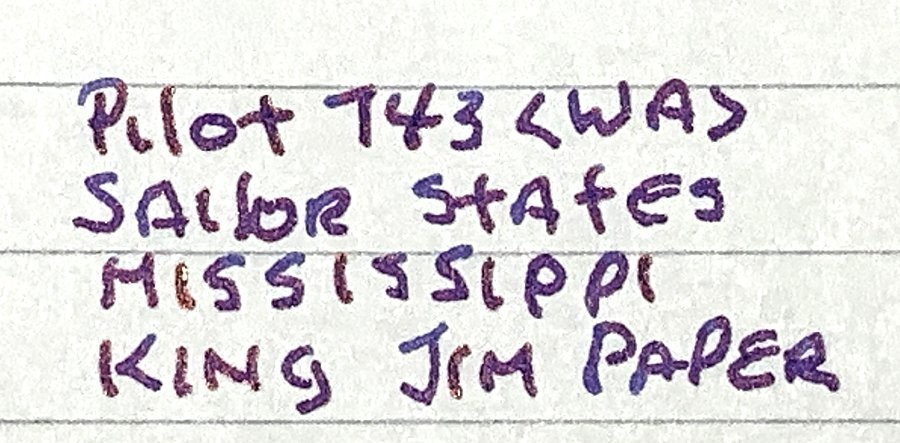 Pilot 743 <WA>
SAIloR StAtES
MISSISSIPPI
KING JIM PAPER